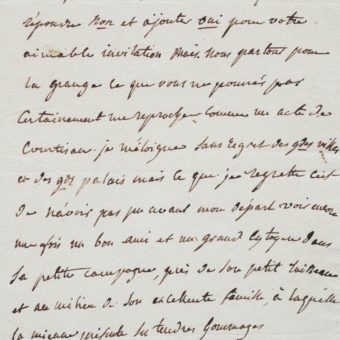 répondre non et ajoute oui pour votre
aimable invitation mais nous partons pour
la grange ce que vous ne pourrés pas
certainement me reprocher comme un acte de
courtisan. je m'éloigne sans regret des gdes villes
et des gds palais mais ce que je regrette c'est
de n'avoir pas pu avant mon départ voir encore
une fois un bon ami et un grand citoyen dans
sa petite campagne, près de son petit ruisseau
et au milieu de son excellente famille, à laquelle
la mienne présente ses tendres hommages